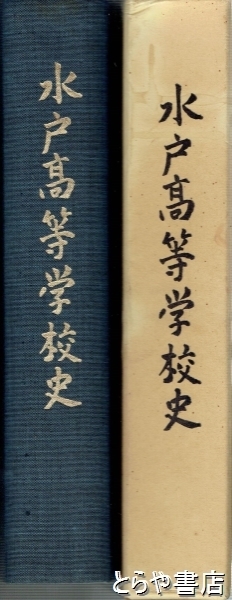 水戸高等学校史
水戸高等学校史
とらや書店